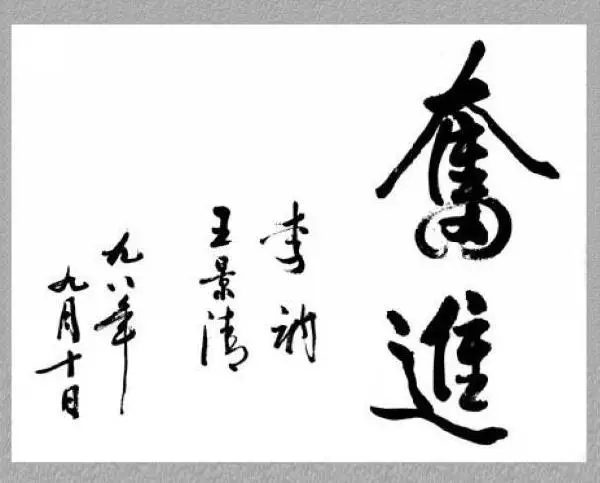 奮進
李讷
王景清
九八年
九月十日